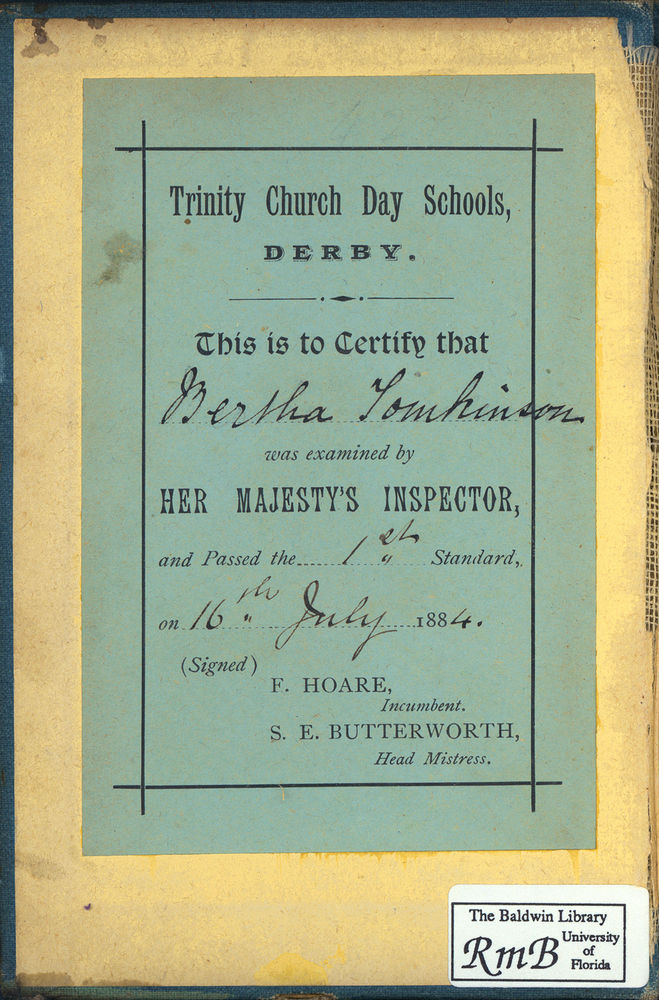 Trinity Church Day Schools,
DERBY.
This is to Certify that
Bertha Tomkinson
was examined by
HER MAJESTY'S INSPECTOR,
and Passed the 1st Standard,
on 16th July 1884.
(Signed)
F. HOARE,
Incumbent.
S. E. BUTTERWORTH,
Head Mistress.
The Baldwin Library
RmB University
of
Florida